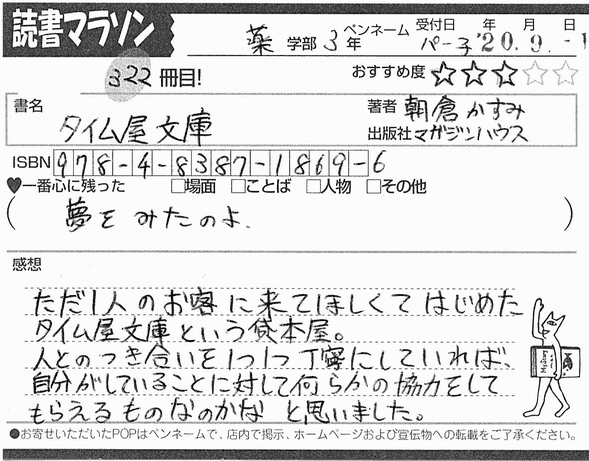 読書マラソン
薬 学部 3 年 ペンネーム パー子 受付日 年 月 日 '20.9.-1
322 冊目! おすすめ度 ★★★☆☆
書名 タイム屋文庫
著者 朝倉かすみ
出版社 マガジンハウス
ISBN 978-4-8387-1869-6
♥一番心に残った □場面 □ことば □人物 □その他
(夢をみたのよ.)
感想
ただ1人のお客に来てほしくてはじめた
タイム屋文庫という貸本屋。
人とのつき合いを1つ1つ丁寧にしていれば、
自分がしていることに対して何らかの協力をして
もらえるものなのかな と思いました。
Mystery
●お寄せいただいたPOPはペンネームで、店内で掲示、ホームページおよび宣伝物への転載をご了承ください。